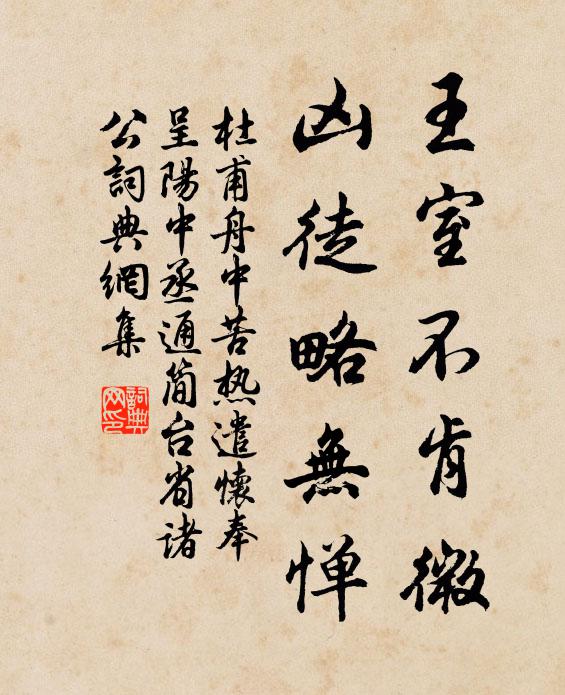 王室不肯微
凶徒略無惮
杜甫舟中苦热遣懷奉
呈陽中丞通简台省诸
公詞典網集
詞典
网印